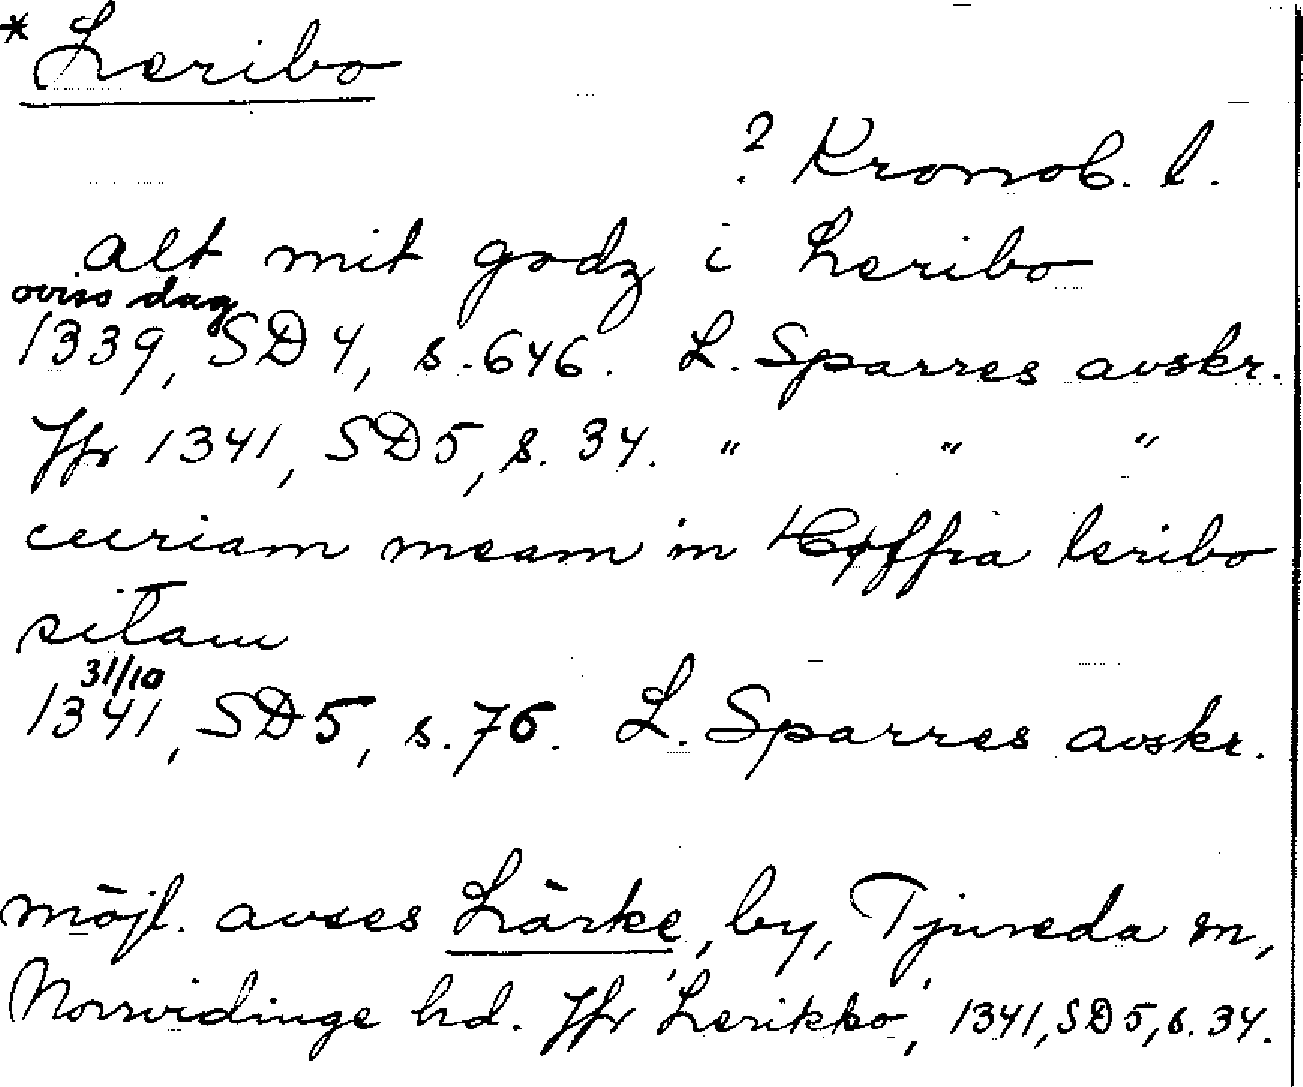 * Leribo
? Kronob. l.
alt mit godz i Leribo
oviss dag
1339, SD 4, s. 646. L. Sparres avskr.
Jfr 1341, SD 5, s. 34. " " "
curiam meam in leribo
sitam
31/10
1341, SD 5, s. 76. L. Sparres avskr.
möjl. avses Lärke, by, Tjureda sn,
Norrvidinge hd. Jfr Lerikko, 1341, SD 5, s. 34.